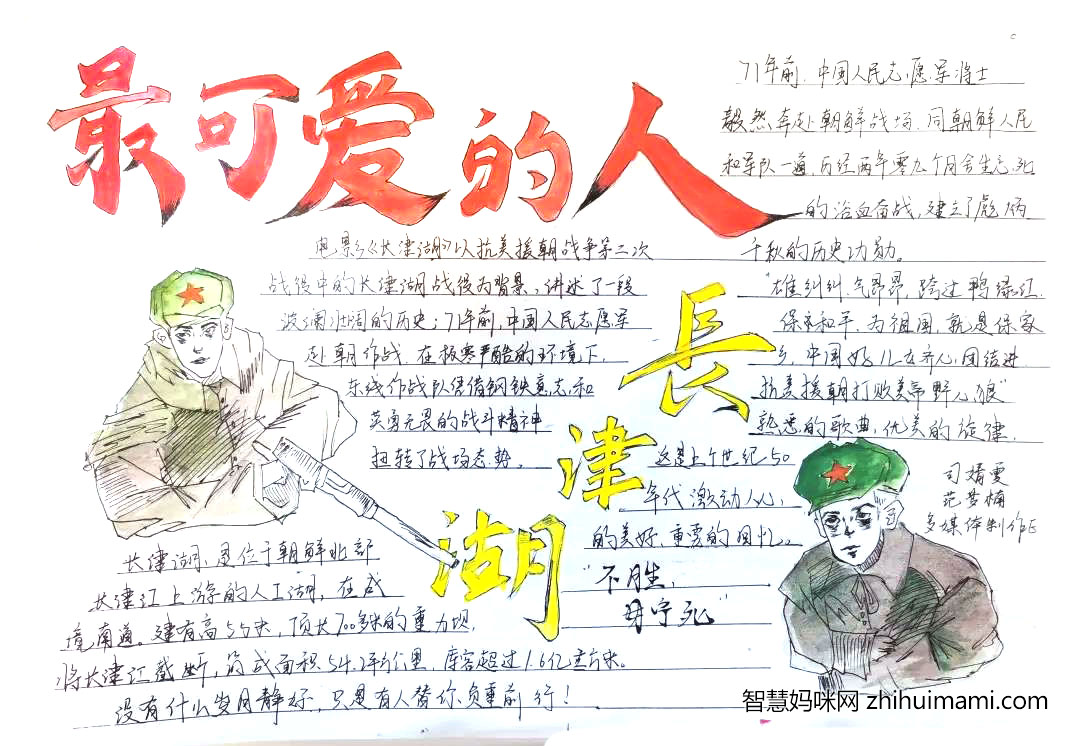 最可爱的人
71年前,中国人民志愿军将士
毅然奔赴朝鲜战场,同朝鲜人民
和军队一道历经两年零九个月舍生忘死
的浴血奋战,建立了彪炳
千秋的历史功勋。
电影《长津湖》以抗美援朝战争第二次
战役中的长津湖战役为背景,讲述了一段
波澜壮阔的历史:71年前,中国人民志愿军
赴朝作战,在极寒严酷的环境下,
东线作战队凭借钢铁意志和
英勇无畏的战斗精神
扭转了战场态势。
長
津
湖
"雄纠纠,气昂昂,跨过鸭绿江.
保卫和平,为祖国,就是保家
乡,中国好儿女齐心,团结进
抗美援朝打败美帝野心狼"
熟悉的歌曲,优美的旋律.
这是上个世纪50
年代激动人心
的美好,重要的回忆。
"不胜,
毋宁死"
司婧雯
范梦楠
多媒体制作E
长津湖,是位于朝鲜北部
长津江上游的人工湖,在咸
境南道。建有高55米,顶长700多米的重力坝,
将长津江截断,筑成面积54.2平方公里,库容超过1.6亿立方米。
没有什么岁月静好,只是有人替你负重前行!
智慧妈咪网 zhihuimami.com